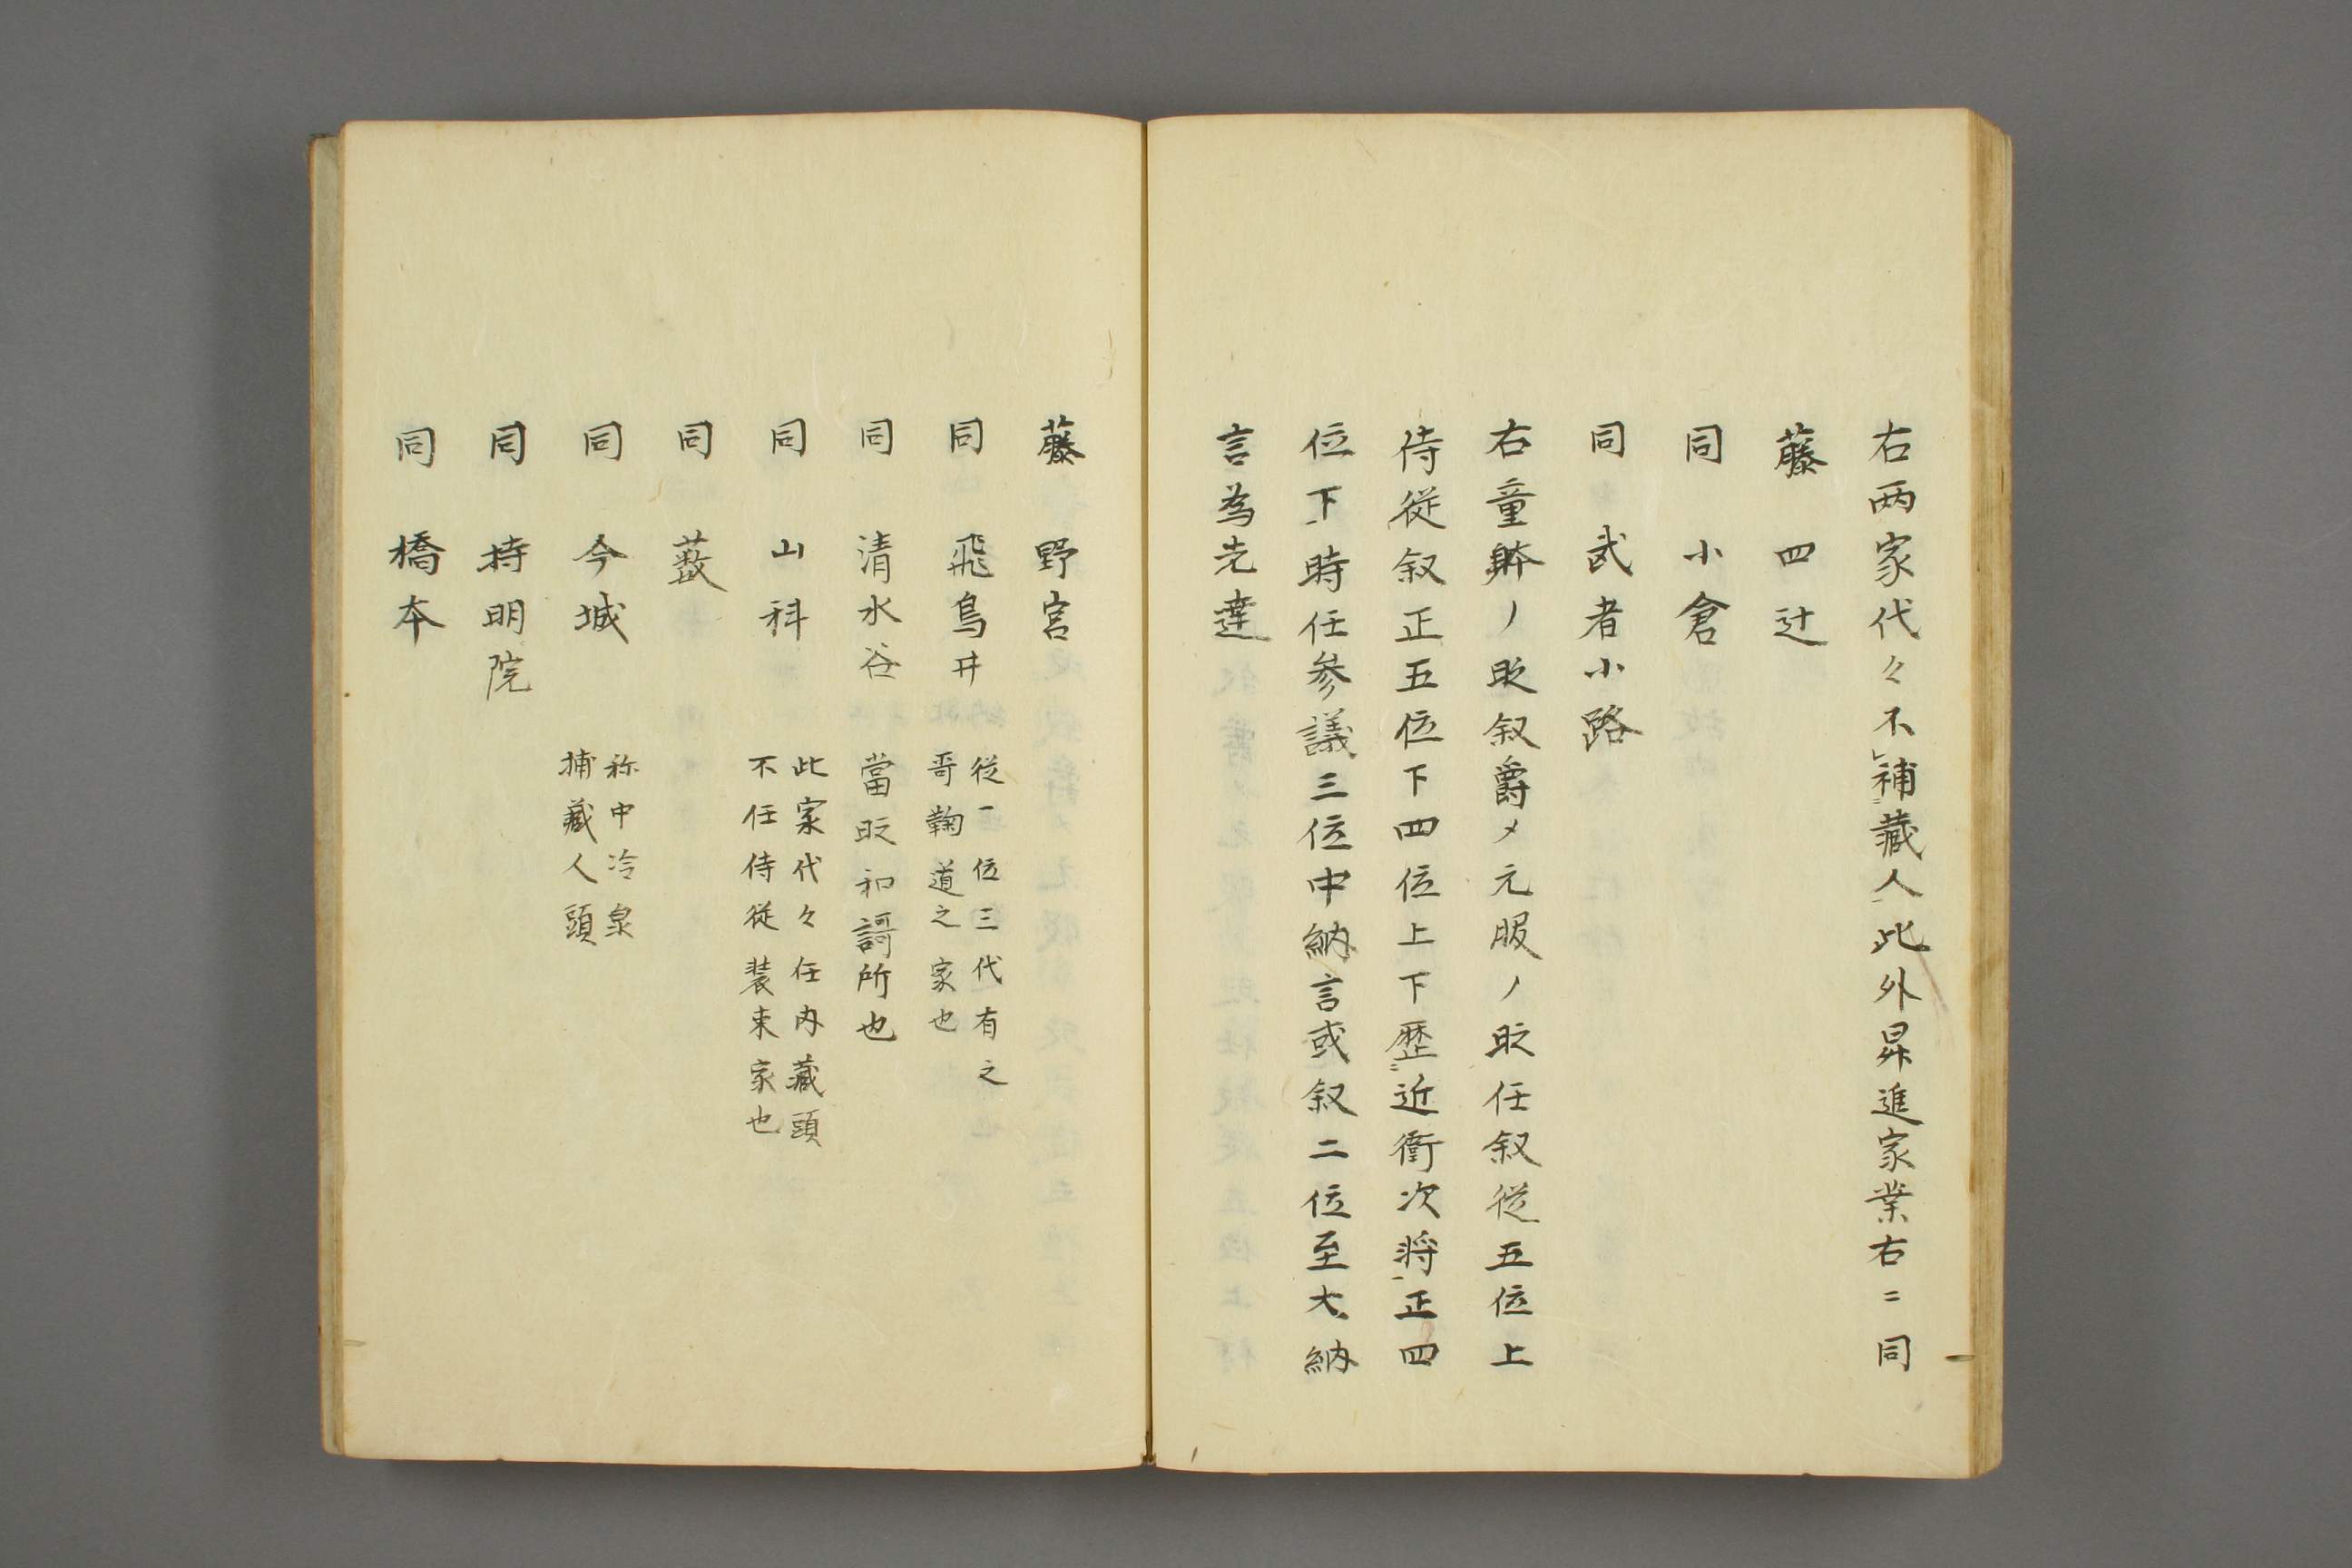 右両家代々不レ補二藏人一此外昇進家業右ニ同
藤　四辻
同　小倉
同　武者小路
右童躰ノ时叙爵〆元服ノ时任叙從五位上
侍從叙正五位下四位上下歴二近衛次将一正四
位下時任参議三位中納言或叙二位至大納
言為先達
藤　野宮
同　飛鳥井　從一位三代有之
哥鞠道之家也
同　清水谷　當时和謌所也
同　山科　此家代々任内藏頭
不任侍從装束家也
同　薮
同　今城　称中冷泉
補藏人頭
同　持明院
同　橋本